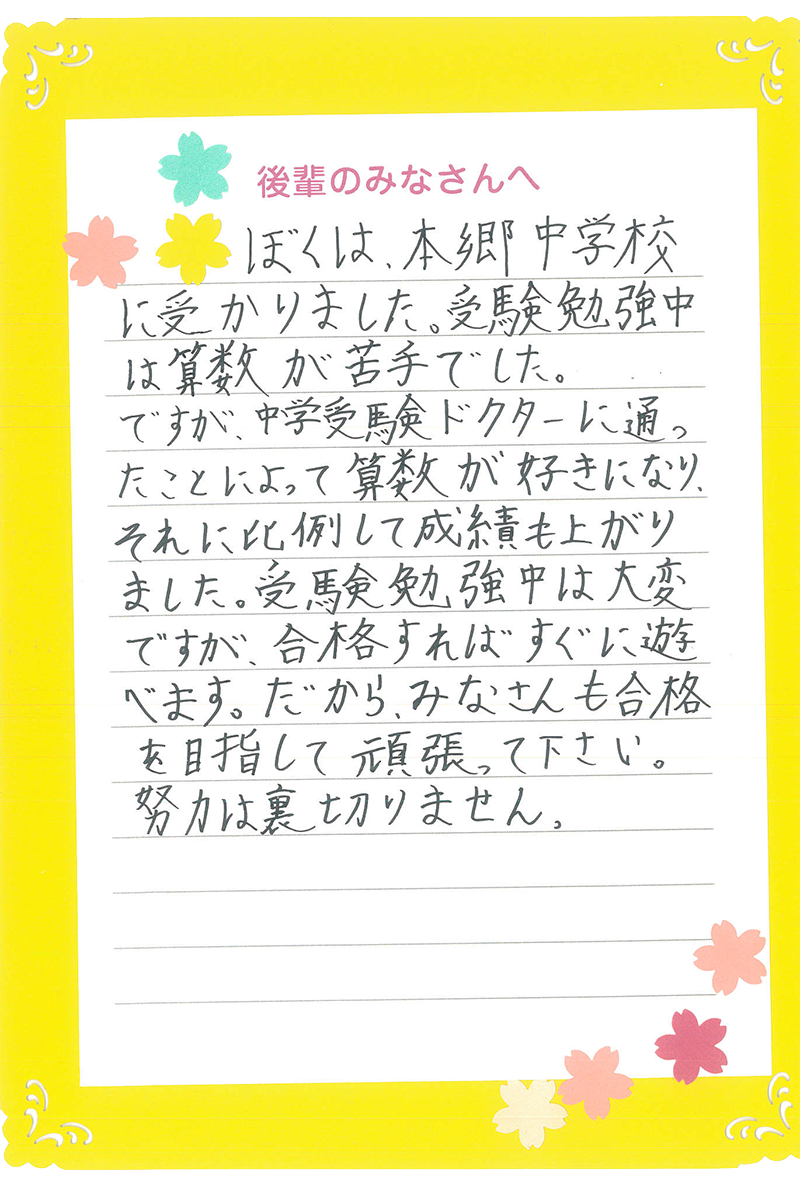 後輩のみなさんへ
ぼくは、本郷中学校
に受かりました。受験勉強中
は算数が苦手でした。
ですが、中学受験ドクターに通っ
たことによって算数が好きになり、
それに比例して成績も上がり
ました。受験勉強中は大変
ですが、合格すればすぐに遊
べます。だから、みなさんも合格
を目指して頑張って下さい。
努力は裏切りません。